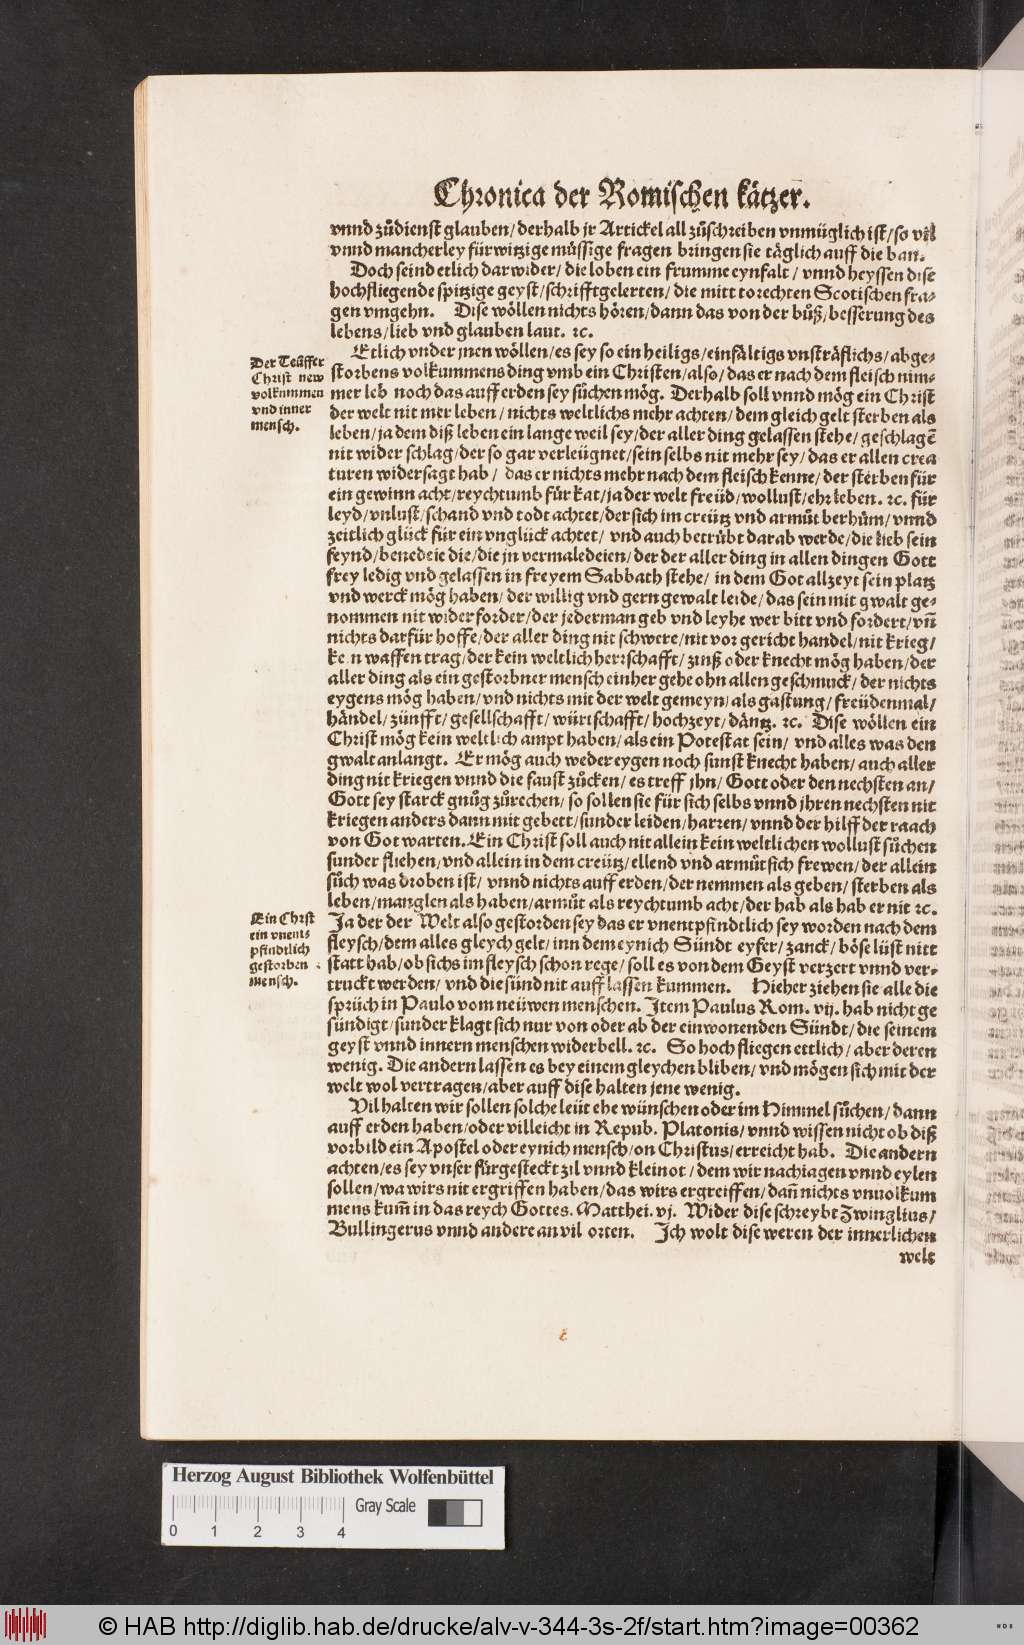 Chronica der Romischen kätzer.
vnnd zůdienst glauben/ derhalb jr Artickel all zůschreiben vnmüglich ist/ so vil
vnnd mancherley fürwitzige müssige fragen bringen sie täglich auff die ban.
Doch seind etlich darwider/ die loben ein frumme eynfalt/ vnnd heyssen dise
hochfliegende spitzige geyst/ schrifftgelerten/ die mitt torechten Scotischen fra-
gen vmgehn. Dise wöllen nichts hören/ dann das von der bůß/ besserung des
lebens/ lieb vnd glauben laut. ꝛc.
Etlich vnder jnen wöllen/ es sey so ein heiligs/ einfältigs vnsträflichs/ abge-
storbens volkummens ding vmb ein Christen/ also/ das er nach dem fleisch nim-
mer leb noch das auff erden sey sůchen mög. Derhalb soll vnnd mög ein Christ
der welt nit mer leben/ nichts weltlichs mehr achten/ dem gleich gelt sterben als
leben/ ja dem diß leben ein lange weil sey/ der aller ding gelassen stehe/ geschlagē
nit wider schlag/ der so gar verleügnet/ sein selbs nit mehr sey/ das er allen crea
turen widersagt hab/ das er nichts mehr nach dem fleisch kenne/ der sterben für
ein gewinn acht/ reychtumb für kat/ ja der welt freüd/ wollust/ ehr leben. ꝛc. für
leyd/ vnlust/ schand vnd todt achtet/ der sich im creütz vnd armůt berhům/ vnnd
zeitlich glück für ein vnglück achtet/ vnd auch betrübt darab werde/ die lieb sein
feynd/ benedeie die/ die jn vermaledeien/ der der aller ding in allen dingen Gott
frey ledig vnd gelassen in freyem Sabbath stehe/ in dem Got allzeyt sein platz
vnd werck mög haben/ der willig vnd gern gewalt leide/ das sein mit gwalt ge-
nommen nit wider forder/ der jederman geb vnd leyhe wer bitt vnd fordert/ vñ
nichts darfür hoffe/ der aller ding nit schwere/ nit vor gericht handel/ nit krieg/
kein waffen trag/ der kein weltlich herrschafft/ zinß oder knecht mög haben/ der
aller ding als ein gestorbner mensch einher gehe ohn allen geschmuck/ der nichts
eygens mög haben/ vnd nichts mit der welt gemeyn/ als gastung/ freüdenmal/
händel/ zünfft/ gesellschafft/ würtschafft/ hochzeyt/ däntz. ꝛc. Dise wöllen ein
Christ mög kein weltlich ampt haben/ als ein Potestat sein/ vnd alles was den
gwalt anlangt. Er mög auch weder eygen noch sunst knecht haben/ auch aller
ding nit kriegen vnnd die faust zůcken/ es treff jhn/ Gott oder den nechsten an/
Gott sey starck gnůg zůrechen/ so sollen sie für sich selbs vnnd jhren nechsten nit
kriegen anders dann mit gebett/ sunder leiden/ harren/ vnnd der hilff der raach
von Got warten. Ein Christ soll auch nit allein kein weltlichen wollust sůchen
sunder fliehen/ vnd allein in dem creütz/ ellend vnd armůt sich frewen/ der allein
sůch was droben ist/ vnnd nichts auff erden/ der nemmen als geben/ sterben als
leben/ manglen als haben/ armůt als reychtumb acht/ der hab als hab er nit ꝛc.
Ja der der Welt also gestorden sey das er vnentpfindtlich sey worden nach dem
fleysch/ dem alles gleych gelt/ inn dem eynich Sündt eyfer/ zanck/ böse lüst nitt
statt hab/ ob sichs im fleysch schon rege/ soll es von dem Geyst verzert vnnd ver-
truckt werden/ vnd die sünd nit auff lassen kummen. Hieher ziehen sie alle die
sprüch in Paulo vom neüwen menschen. Item Paulus Rom. vij. hab nicht ge
sündigt/ sunder klagt sich nur von oder ab der einwonenden Sündt/ die seinem
geyst vnnd innern menschen widerbell. ꝛc. So hoch fliegen ettlich/ aber deren
wenig. Die andern lassen es bey einem gleychen bliben/ vnd mögen sich mit der
welt wol vertragen/ aber auff dise halten jene wenig.
Vil halten wir sollen solche leüt ehe wünschen oder im Himmel sůchen/ dann
auff erden haben/ oder villeicht in Repub. Platonis/ vnnd wissen nicht ob diß
vorbild ein Apostel oder eynich mensch/ on Christus/ erreicht hab. Die andern
achten/ es sey vnser fürgesteckt zil vnnd kleinot/ dem wir nachiagen vnnd eylen
sollen/ wa wirs nit ergriffen haben/ das wirs ergreiffen/ dañ nichts vnuolkum
mens kum̄ in das reych Gottes. Matthei. vj. Wider dise schreybt Zwinglius/
Bullingerus vnnd andere an vil orten. Ich wolt dise weren der innerlichen
welt
Der Teüffer
Christ new
volkummen
vnd inner
mensch.
Ein Christ
ein vnent-
pfindtlich
gestorben
mensch.
Herzog August Bibliothek Wolfenbüttel
Gray Scale
0 1 2 3 4
© HAB http://diglib.hab.de/drucke/alv-v-344-3s-2f/start.htm?image=00362